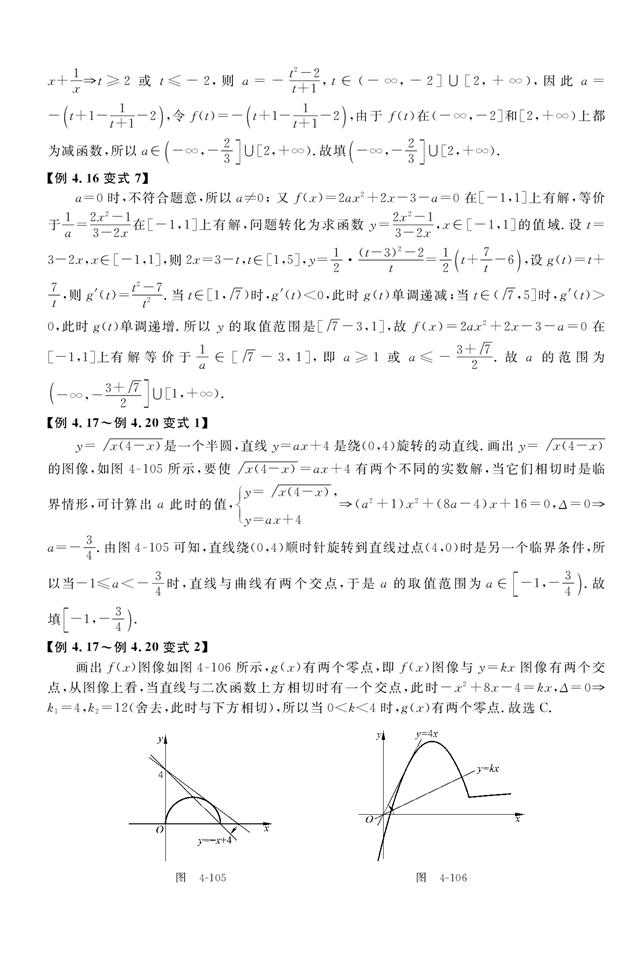 x+1/x⇒t≥2 或 t≤-2,则 a=-(t²-2)/(t+1),t∈(-∞,-2]∪[2,+∞),因此 a=
-(t+1-1/(t+1)-2),令 f(t)=-(t+1-1/(t+1)-2),由于 f(t)在(-∞,-2]和[2,+∞)上都
为减函数,所以 a∈(-∞,-2/3]∪[2,+∞).故填(-∞,-2/3]∪[2,+∞).
【例 4.16 变式 7】
a=0 时,不符合题意,所以 a≠0;又 f(x)=2ax²+2x-3-a=0 在[-1,1]上有解,等价
于1/a=(2x²-1)/(3-2x)在[-1,1]上有解,问题转化为求函数 y=(2x²-1)/(3-2x),x∈[-1,1]的值域.设 t=
3-2x,x∈[-1,1],则 2x=3-t,t∈[1,5],y=1/2·((t-3)²-2)/t=1/2(t+7/t-6),设 g(t)=t+
7/t,则 g′(t)=(t²-7)/t².当 t∈[1,√7)时,g′(t)<0,此时 g(t)单调递减;当 t∈(√7,5]时,g′(t)>
0,此时 g(t)单调递增.所以 y 的取值范围是[√7-3,1],故 f(x)=2ax²+2x-3-a=0 在
[-1,1]上有解等价于1/a∈[√7-3,1],即 a≥1 或 a≤-(3+√7)/2.故 a 的范围为
(-∞,-(3+√7)/2]∪[1,+∞).
【例 4.17～例 4.20 变式 1】
y=√x(4-x)是一个半圆,直线 y=ax+4 是绕(0,4)旋转的动直线.画出 y=√x(4-x)
的图像,如图 4-105 所示,要使√x(4-x)=ax+4 有两个不同的实数解,当它们相切时是临
界情形,可计算出 a 此时的值,{y=√x(4-x),
y=ax+4 ⇒(a²+1)x²+(8a-4)x+16=0,Δ=0⇒
a=-3/4.由图 4-105 可知,直线绕(0,4)顺时针旋转到直线过点(4,0)时是另一个临界条件,所
以当-1≤a<-3/4时,直线与曲线有两个交点,于是 a 的取值范围为 a∈[-1,-3/4).故
填[-1,-3/4).
【例 4.17～例 4.20 变式 2】
画出 f(x)图像如图 4-106 所示,g(x)有两个零点,即 f(x)图像与 y=kx 图像有两个交
点,从图像上看,当直线与二次函数上方相切时有一个交点,此时-x²+8x-4=kx,Δ=0⇒
k₁=4,k₂=12(舍去,此时与下方相切),所以当 0<k<4 时,g(x)有两个零点.故选 C.
y
4
O
x
y=-x+4
图 4-105
y
y=4x
y=kx
O
x
图 4-106